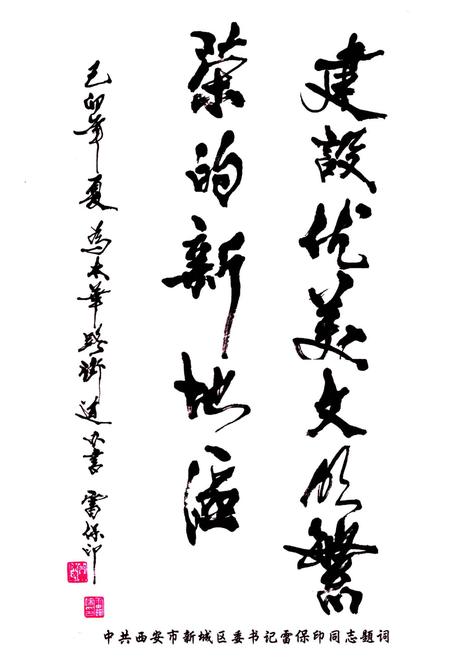 建設优美文明繁
荣的新地區
己卯年夏 為太華路街道办書 雷保印
中共西安市新城区委书记雷保印同志题词